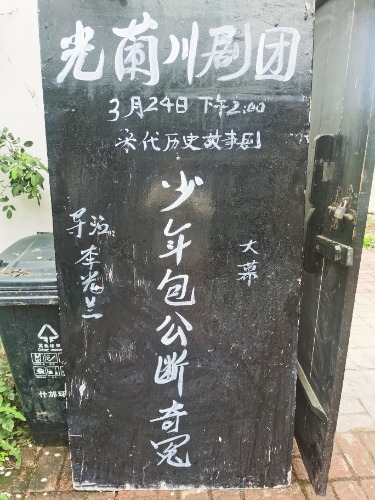 光莆川剧团
3月24日下午2:00
宋代历史故事剧
少年包公断奇冤
大幕
导演李光兰
什邡环